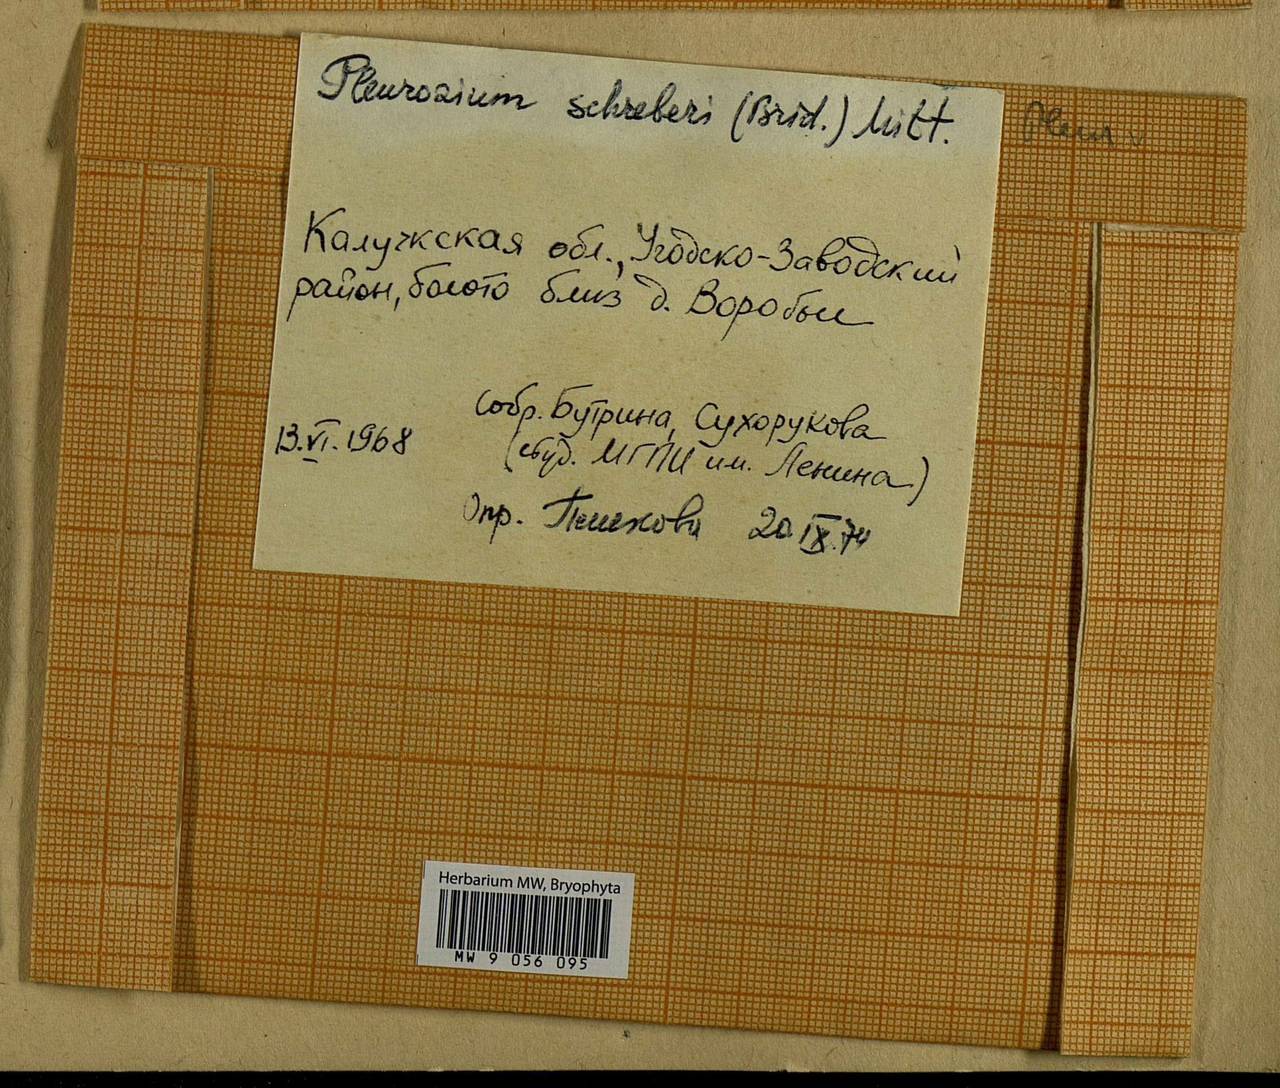 Pleurozium schreberi (Brid.) Mitt.
Pleur
Калужская обл., Угодско-Заводский
район, болото близ д. Воробьи
собр. Бутрина, Сухорукова
13.VI.1968
(студ. МГПИ им. Ленина)
Опр. Пешкова 20.IX.74
Herbarium MW, Bryophyta
MW 9 056 095